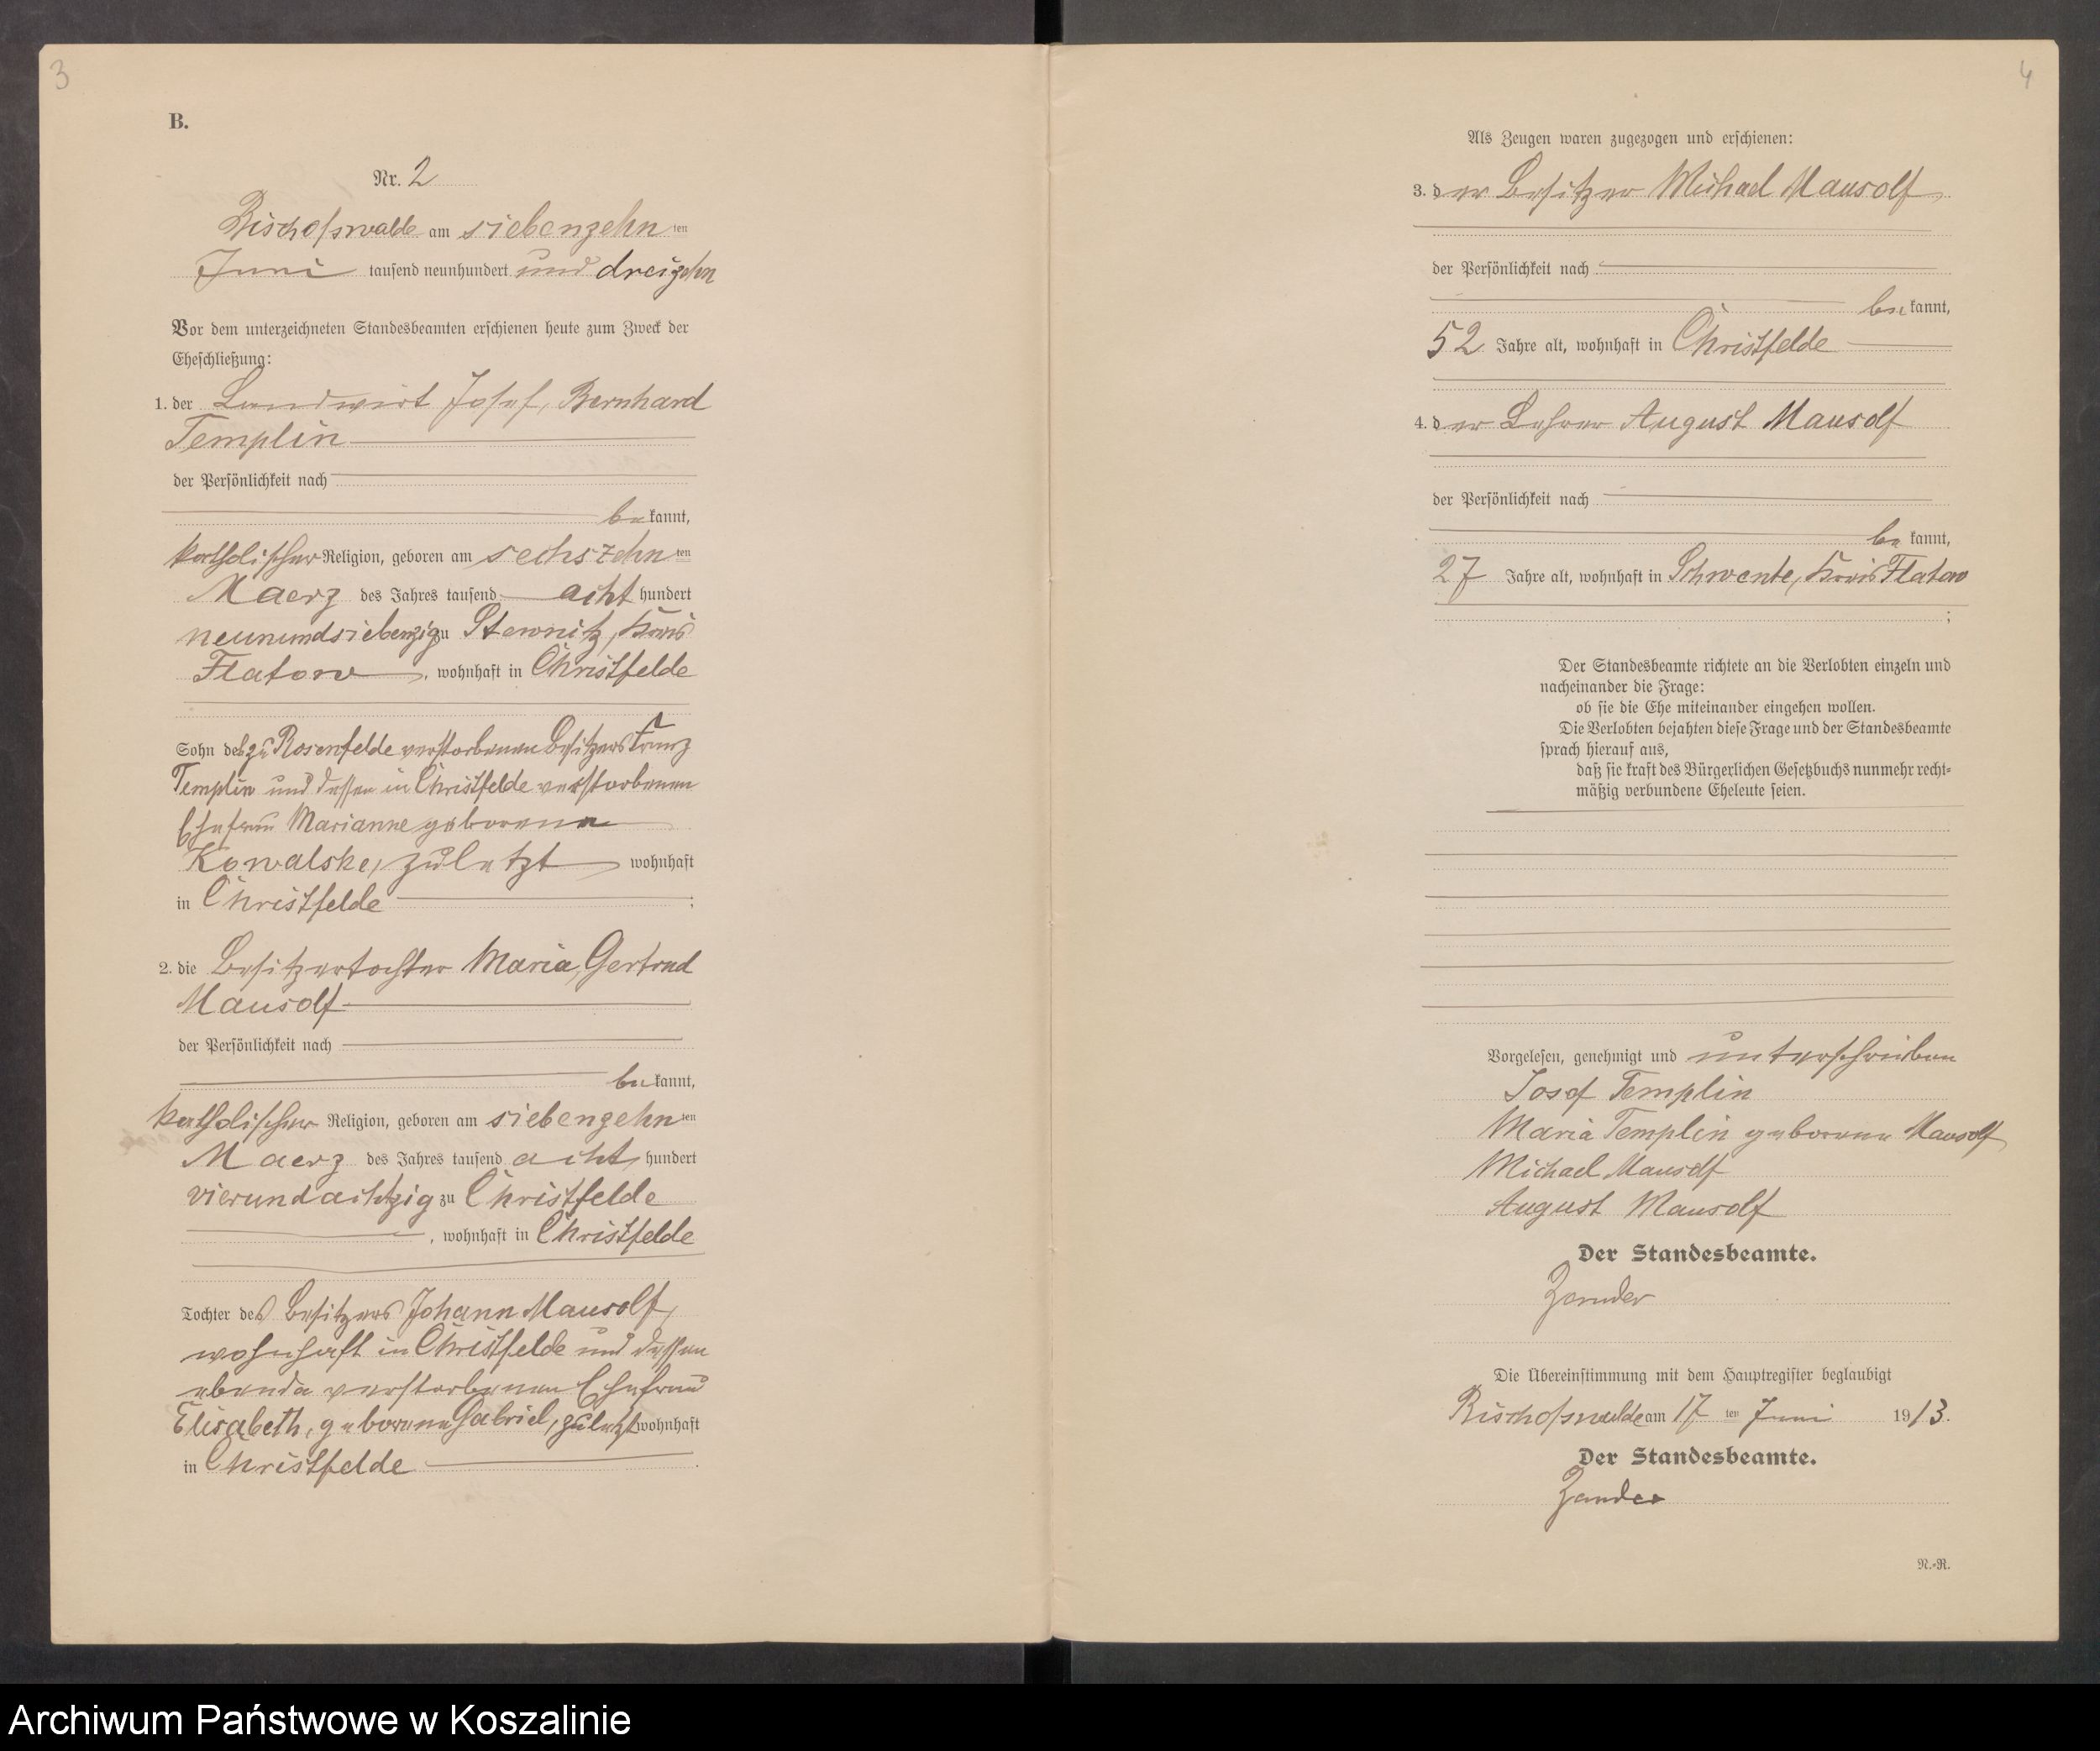 3
B.
Nr. 2
Bischofswalde am siebenzehn ten
Juni tausend neunhundert und dreizehn
Vor dem unterzeichneten Standesbeamten erschienen heute zum Zweck der
Eheschließung:
1. der Landwirt Josef, Bernhard
Templin
der Persönlichkeit nach
be kannt,
katholischer Religion, geboren am sechszehn ten
Maerz des Jahres tausend acht hundert
neunundsiebenzig zu Stewnitz, Kreis
Flatow, wohnhaft in Christfelde
Sohn des zu Rosenfelde verstorbenen Besitzers Franz
Templin und dessen in Christfelde verstorbenen
Ehefrau Marianne geborene
Kowalske, zuletzt wohnhaft
in Christfelde ;
2. die Besitzertochter Maria, Gertrud
Mausolf
der Persönlichkeit nach
be kannt,
katholischer Religion, geboren am siebenzehn ten
Maerz des Jahres tausend acht hundert
vierundachtzig zu Christfelde
, wohnhaft in Christfelde
Tochter des Besitzers Johann Mausolf,
wohnhaft in Christfelde und dessen
ebenda verstorbenen Ehefrau
Elisabeth, geborene Gabriel, zuletzt wohnhaft
in Christfelde .
4
Als Zeugen waren zugezogen und erschienen:
3. der Besitzer Michael Mausolf
der Persönlichkeit nach
be kannt,
52 Jahre alt, wohnhaft in Christfelde
4. der Lehrer August Mausolf
der Persönlichkeit nach
be kannt,
27 Jahre alt, wohnhaft in Schwente, Kreis Flatow
;
Der Standesbeamte richtete an die Verlobten einzeln und
nacheinander die Frage:
ob sie die Ehe miteinander eingehen wollen.
Die Verlobten bejahten diese Frage und der Standesbeamte
sprach hierauf aus,
daß sie kraft des Bürgerlichen Gesetzbuchs nunmehr recht-
mäßig verbundene Eheleute seien.
Vorgelesen, genehmigt und unterschrieben
Josef Templin
Maria Templin geborene Mausolf
Michael Mausolf
August Mausolf
Der Standesbeamte.
Zander
Die Übereinstimmung mit dem Hauptregister beglaubigt
Bischofswalde am 17 ten Juni 1913.
Der Standesbeamte.
Zander
N.-R.
Archiwum Państwowe w Koszalinie